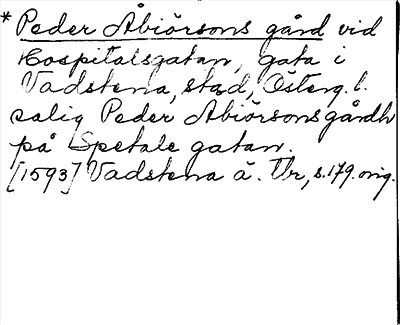 * Peder Åbiörsons gård vid
Hospitalsgatan, gata i
Vadstena, stad, Österg. l.
salig Peder Abiörsons gårdh
på Spetale gatan.
[1593] Vadstena ä. Tbr, s. 179. orig.